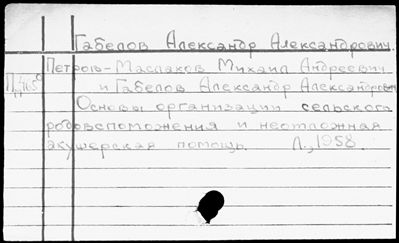 Габелов Александр Александрович.
Петров-Маслаков Михаил Андреевич
и Габелов Александр Александрович
Основы организации сельского
родовспоможения и неотложная
акушерская помощь. Л., 1958.